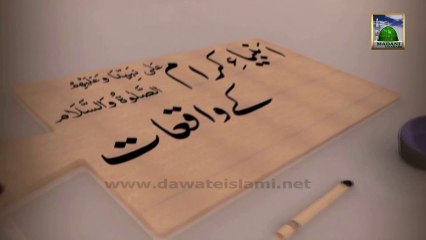 انبیاءِ کرام عَلٰی نَبِیِّنَا وَعَلَیْہِمُ
الصَّلٰوۃُ وَالسَّلَام
کے واقعات
www.dawateislami.net
MADANI